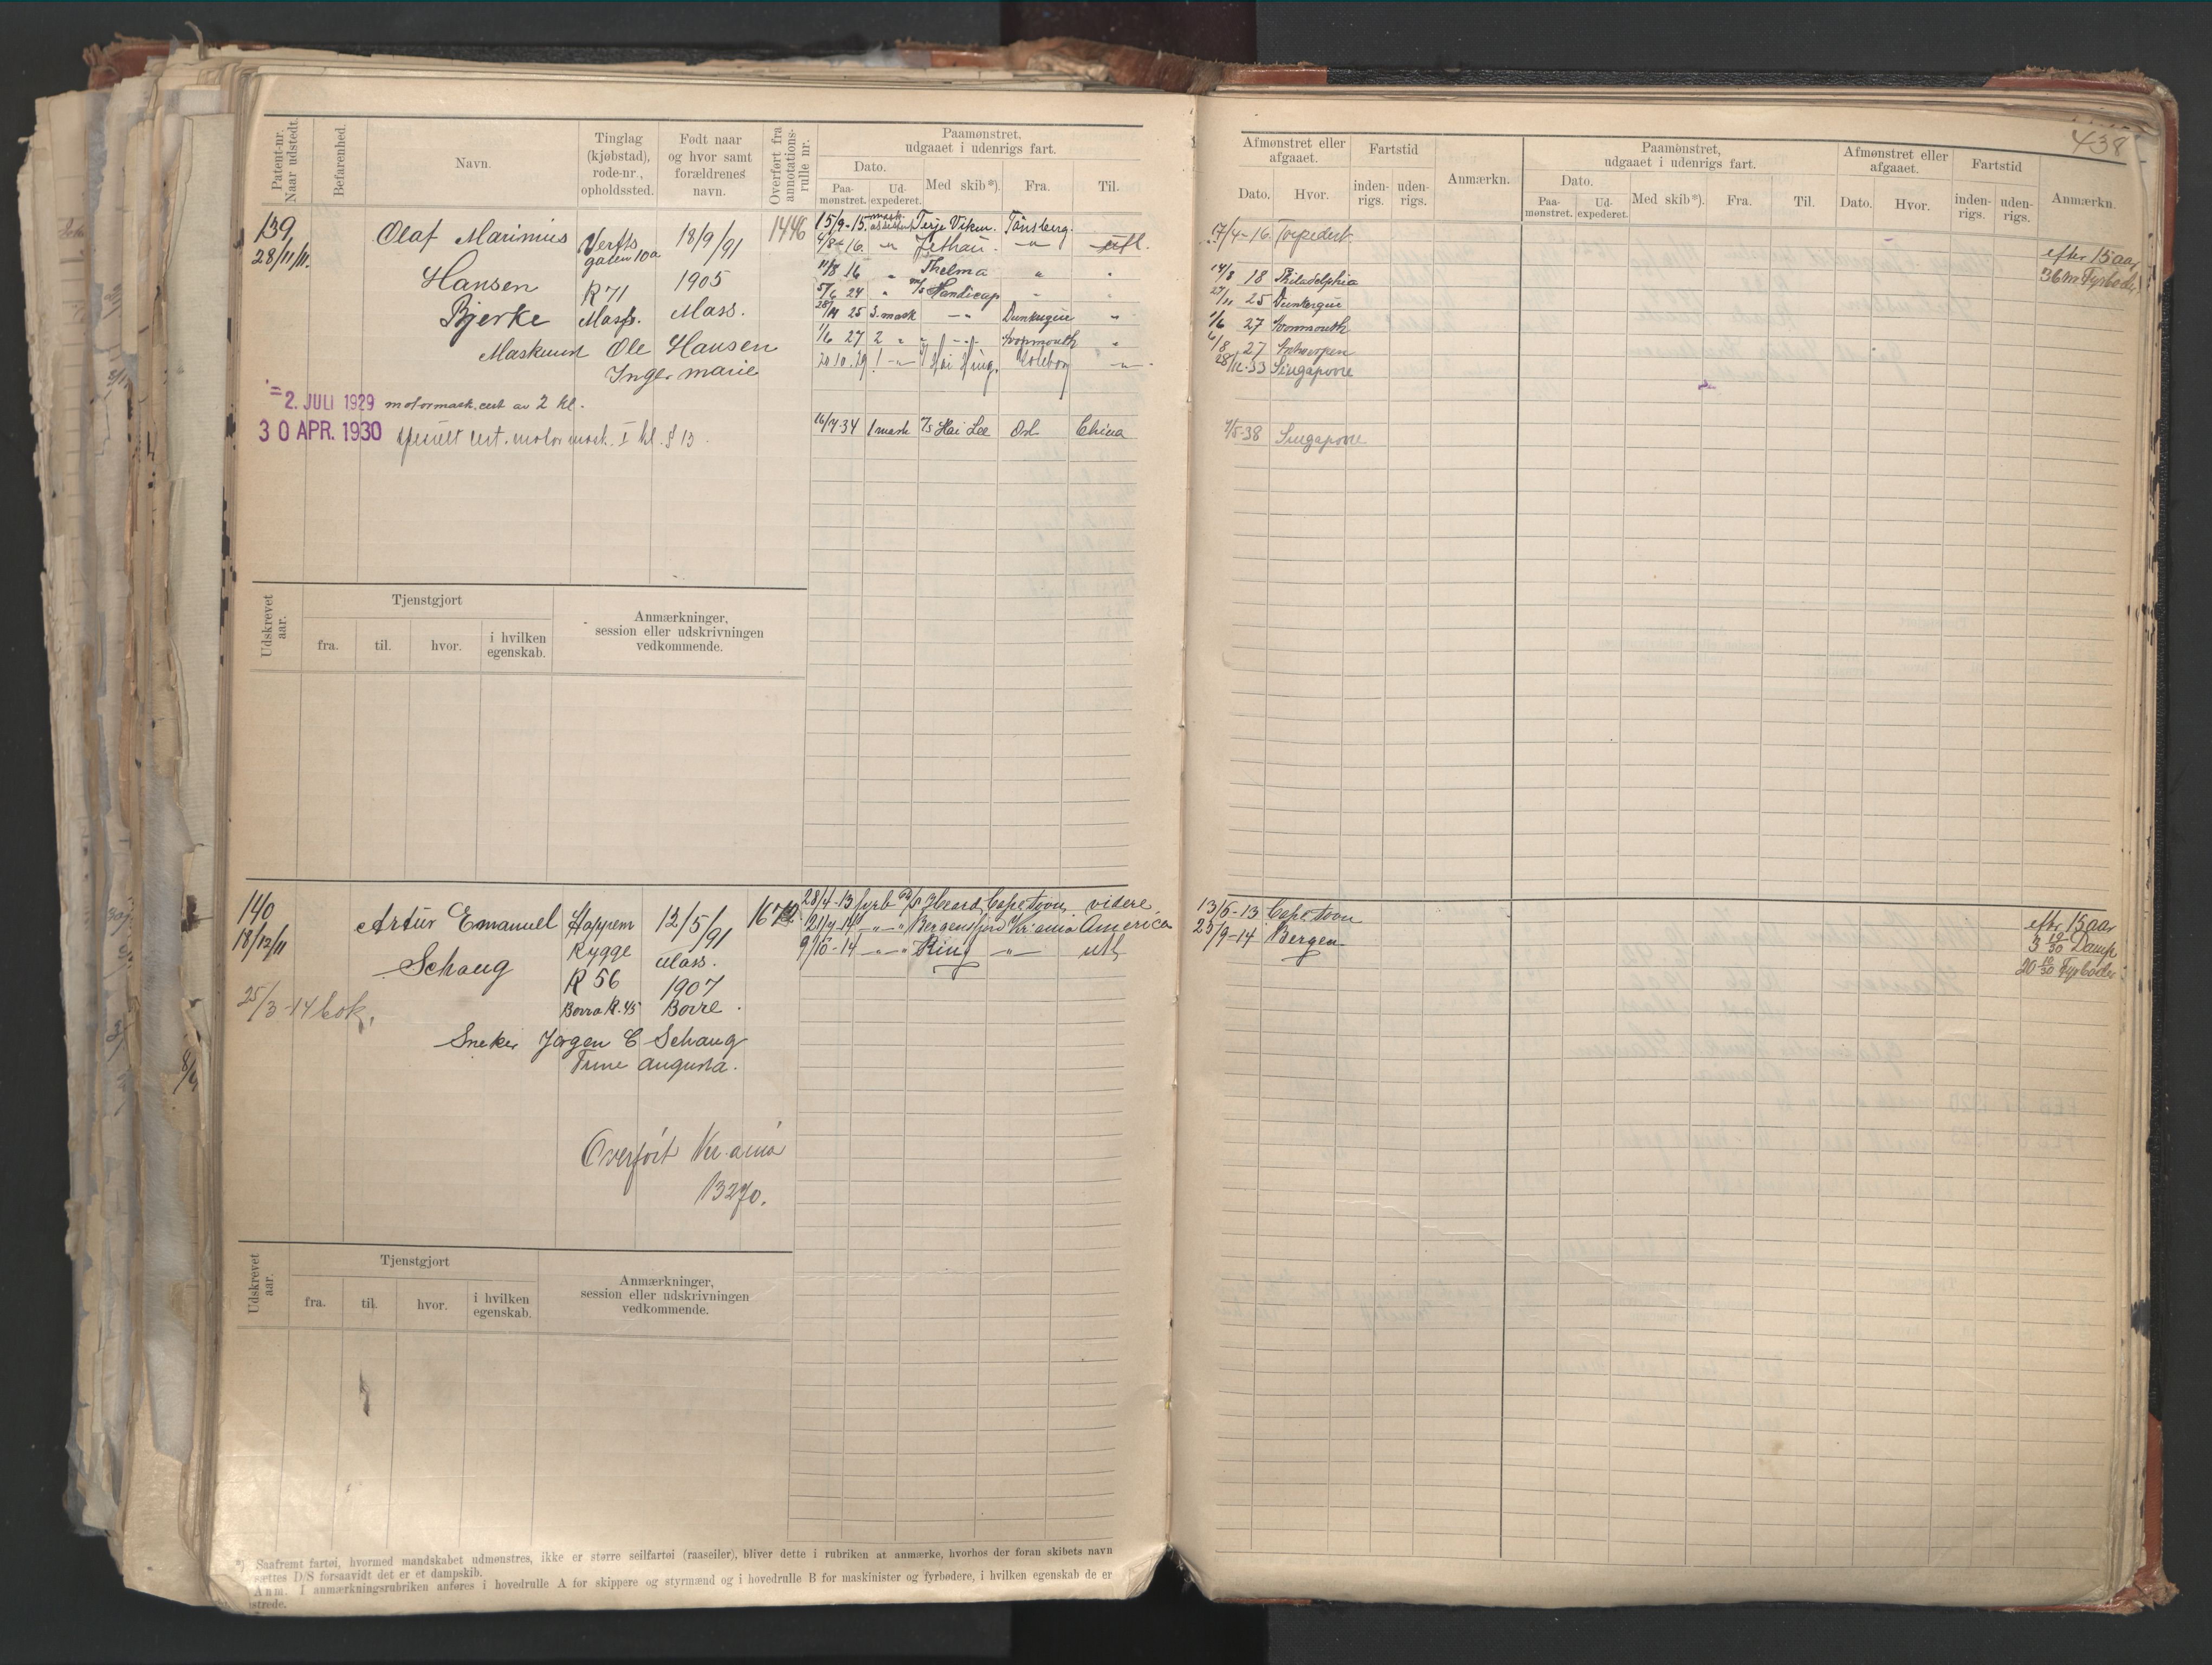 438
Patent-nr. Naar udstedt.
Befarenhed.
Navn.
Tinglag (kjøbstad), rode-nr., opholdssted.
Født naar og hvor samt forældrenes navn.
Overført fra annotationsrulle nr.
Paamønstret, udgaaet i udenrigs fart.
Dato.
Paamønstret.
Udexpederet.
Med skib*).
Fra.
Til.
Afmønstret eller afgaaet.
Dato.
Hvor.
Fartstid
indenrigs.
udenrigs.
Anmærkn.
Paamønstret, udgaaet i udenrigs fart.
Dato.
Paamønstret.
Udexpederet.
Med skib*).
Fra.
Til.
Afmønstret eller afgaaet.
Dato.
Hvor.
Fartstid
indenrigs.
udenrigs.
Anmærkn.
139
28/11/11.
Olaf Marinius
Hansen
Bjerke
Verfts
gaten 10a
R 71
Moss.
18/9/91
1905
Moss.
1446
Ole Hansen
Inger marie
= 2. JULI 1929 motormask. cert av 2 kl.
30 APR. 1930 spesielt cert. motor mask. I kl. § 13.
15/9-15. mask. assistent Terje Viken. Tönsberg.
4/8-16. -"- -"- utl.
11/8 16 " Thelma "
5/6 24 " m/s Handicap "
25 3. mask -"- Dunkerque "
1/6 27 2 " "
20.10.29 1 -"- Hai Hing. -"-
16/7 34 1 mask m/s Hai Lee Osl China
17/4-16. Torpedert
14/8 18 Philadelphia
27/11 25 Dunkerque
1/6 27 Avonmouth
6/8 27 Antwerpen
28/12-33 Singapore
4/5-38 Singapore
efter 15 aar
36 m Fyrbøder
Udskrevet aar.
Tjenstgjort
fra.
til.
hvor.
i hvilken egenskab.
Anmærkninger, session eller udskrivningen vedkommende.
140
18/12/11
25/3-14 bok.
Artur Emanuel
Schaug
Rygge
R 56
Borre R. 45
12/5/91
Moss.
1907
Borre.
Sneker Jørgen E Schaug
Trine Augusta.
Overført Kr.ania
13270.
28/4-13 fyrb Cape town videre
21/4-14 -"- Bergensfjord Kr.ania America
9/10-14 -"- Ring -"- utl,
13/5-13 Cape town
23/9-14 Bergen
efter 15 aar
3 19/30 Damp
Fyrbøder
Udskrevet aar.
Tjenstgjort
fra.
til.
hvor.
i hvilken egenskab.
Anmærkninger, session eller udskrivningen vedkommende.
*) Saafremt fartøi, hvormed mandskabet udmønstres, ikke er større seilfartøi (raaseiler), bliver dette i rubriken at anmærke, hvorhos der foran skibets navn
sættes D/S forsaavidt det er et dampskib.
Anm. I anmærkningsrubriken anføres i hovedrulle A for skippere og styrmænd og i hovedrulle B for maskinister og fyrbødere, i hvilken egenskab de er
strede.